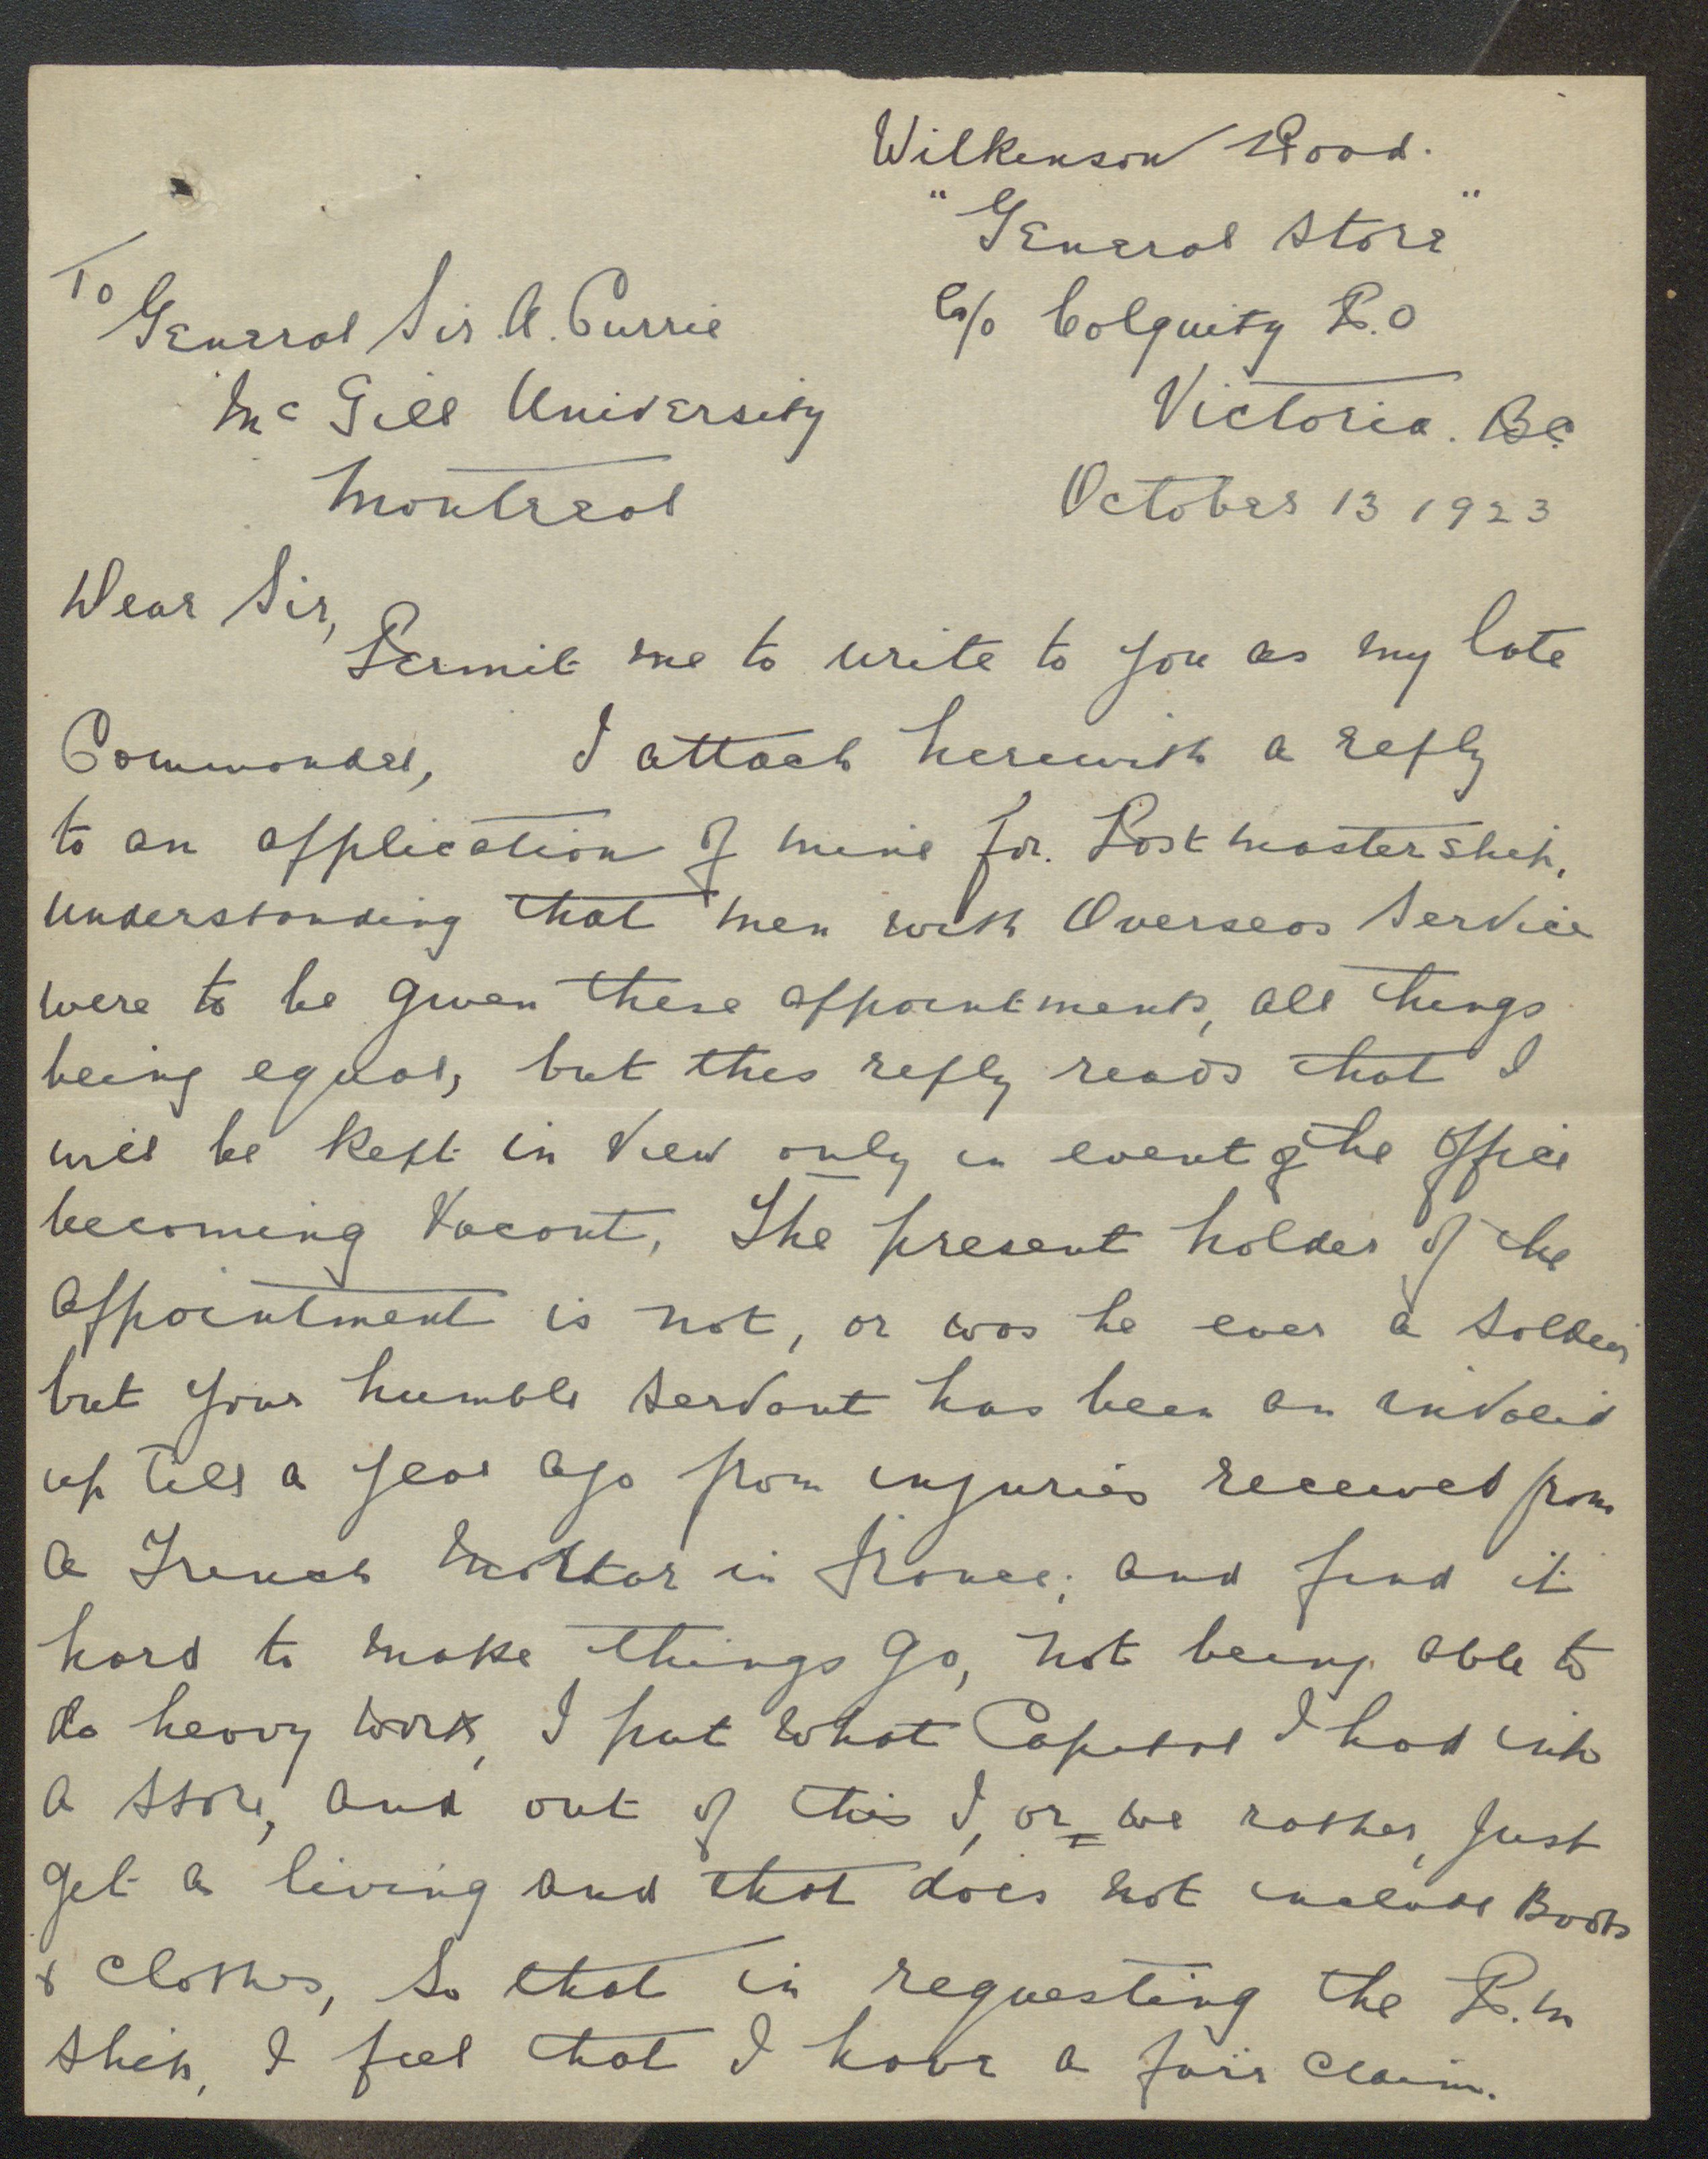 Wilkenson Road.
"General Store"
C/o Colquity P.O
Victoria. B.C.
October 13 1923
To
General Sir. A. Currie
McGill University
Montreal
Dear Sir,
Permit me to write to you as my late
Commander, I attach herewith a reply
to an application of mine for. Postmastership,
understanding that men with Overseas Service
were to be given these appointments, all things
being equal, but this reply reads that I
will be kept in view only in event of the office
becoming vacant, The present holder of the
appointment is not, or was he ever a soldier
but your humble servant has been an invalid
up till a year ago from injuries received from
a Trench Mortar in France; and find it
hard to make things go, not being able to
do heavy work, I put what Capital I had into
a store, and out of this I, or we rather, just
get a living and that does not include Boots
& clothes, So that in requesting the P.M
ship, I feel that I have a fair claim.